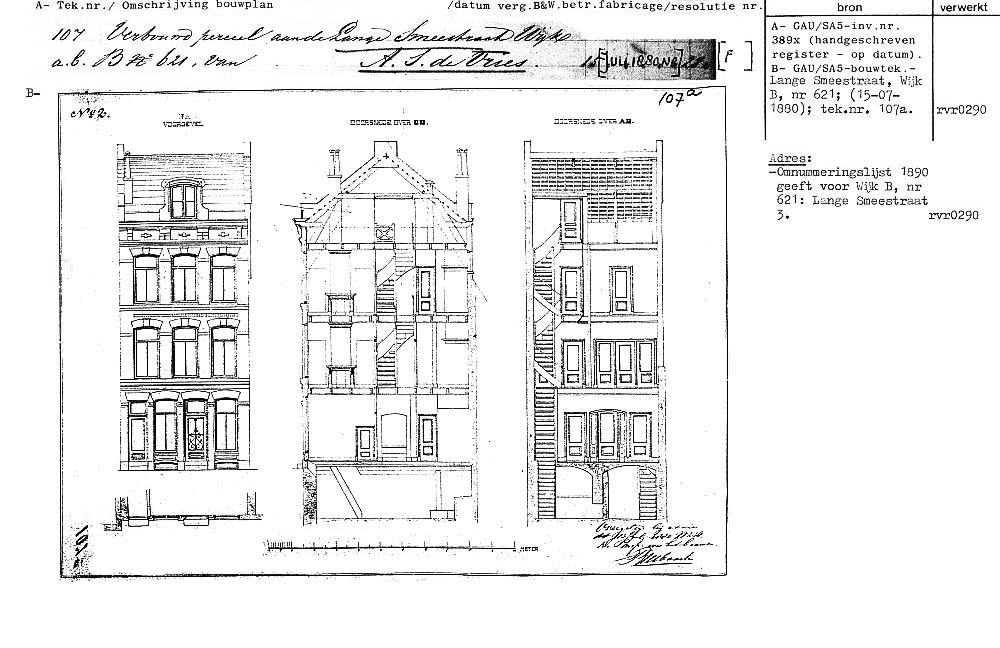 A- Tek.nr./ Omschrijving bouwplan /datum verg.B&W.betr.fabricage/resolutie nr.
bron
verwerkt
107 Verbouw perceel aan de Lange Smeestraat Wijk
a.b. B No 621, van A. S. de Vries. 15 JULI 1880 No [F]
A- GAU/SA5-inv.nr.
389x (handgeschreven
register - op datum).
B- GAU/SA5-bouwtek.-
Lange Smeestraat, Wijk
B, nr 621; (15-07-
1880); tek.nr. 107a.
rvr0290
Adres:
-Omnummeringslijst 1890
geeft voor Wijk B, nr
621: Lange Smeestraat
3.
rvr0290
B-
No 2.
107a
VOORGEVEL
DOORSNEDE OVER C.D.
DOORSNEDE OVER A.B.
METER
107a